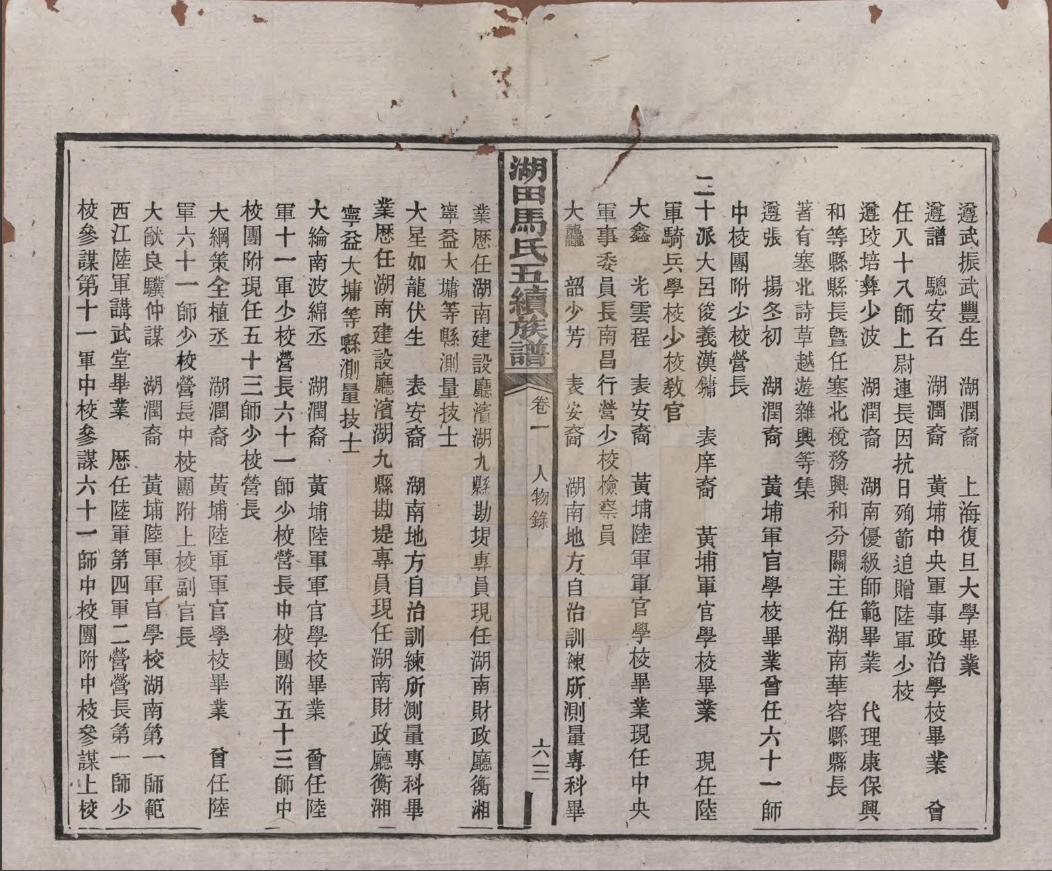 遵武振武豐生　湖潤裔　上海復旦大學畢業
遵譜　驄安石　湖潤裔　黃埔中央軍事政治學校畢業　曾
任八十八師上尉連長因抗日殉節追贈陸軍少校
遵珓培彝少波　湖潤裔　湖南優級師範畢業　代理康保興
和等縣縣長暨任塞北稅務興和分關主任湖南華容縣縣長
著有塞北詩草越遊雜興等集
遵張　揚冬初　湖潤裔　黃埔軍官學校畢業曾任六十一師
中校團附少校營長
二十派大呂俊義漢鏞　表庠裔　黃埔軍官學校畢業　現任陸
軍騎兵學校少校教官
大鑫　光雲程　表安裔　黃埔陸軍軍官學校畢業現任中央
軍事委員長南昌行營少校檢察員
大龘　韶少芳　表安裔　湖南地方自治訓練所測量專科畢
湖田馬氏五續族譜　卷一　人物錄　六三
業歷任湖南建設廳濱湖九縣勘堤專員現任湖南財政廳衡湘
寧益大墉等縣測量技士
大星如龍伏生　表安裔　湖南地方自治訓練所測量專科畢
業歷任湖南建設廳濱湖九縣勘堤專員現任湖南財政廳衡湘
寧益大墉等縣測量技士
大綸南波綿丞　湖潤裔　黃埔陸軍軍官學校畢業　曾任陸
軍十一軍少校營長六十一師少校營長中校團附五十三師中
校團附現任五十三師少校營長
大綱策全植丞　湖潤裔　黃埔陸軍軍官學校畢業　曾任陸
軍六十一師少校營長中校團附上校副官長
大猷良驥仲謀　湖潤裔　黃埔陸軍軍官學校湖南第一師範
西江陸軍講武堂畢業　歷任陸軍第四軍二營營長第一師少
校參謀第十一軍中校參謀六十一師中校團附中校參謀上校